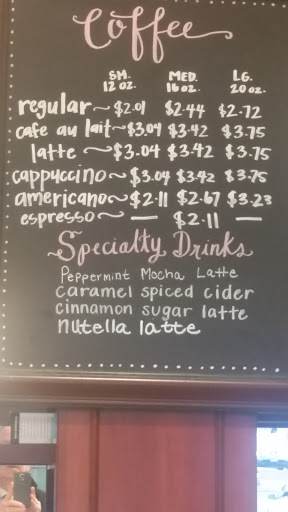 Coffee
SM. MED. LG.
12 oz. 16 oz. 20 oz.
regular ~ $2.01 $2.44 $2.72
cafe au lait ~ $3.04 $3.42 $3.75
latte ~ $3.04 $3.42 $3.75
cappuccino ~ $3.04 $3.42 $3.75
americano ~ $2.11 $2.67 $3.23
espresso ~ — $2.11 —
Specialty Drinks
Peppermint Mocha Latte
caramel spiced cider
cinnamon sugar latte
nutella latte